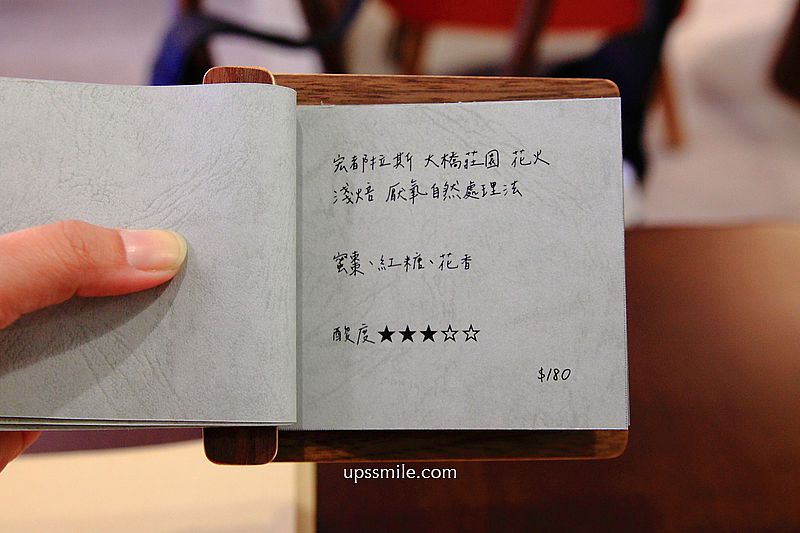 宏都拉斯 大橋莊園 花火
淺焙 厭氧自然處理法
蜜棗、紅糖、花香
酸度★★★☆☆
$180
upssmile.com